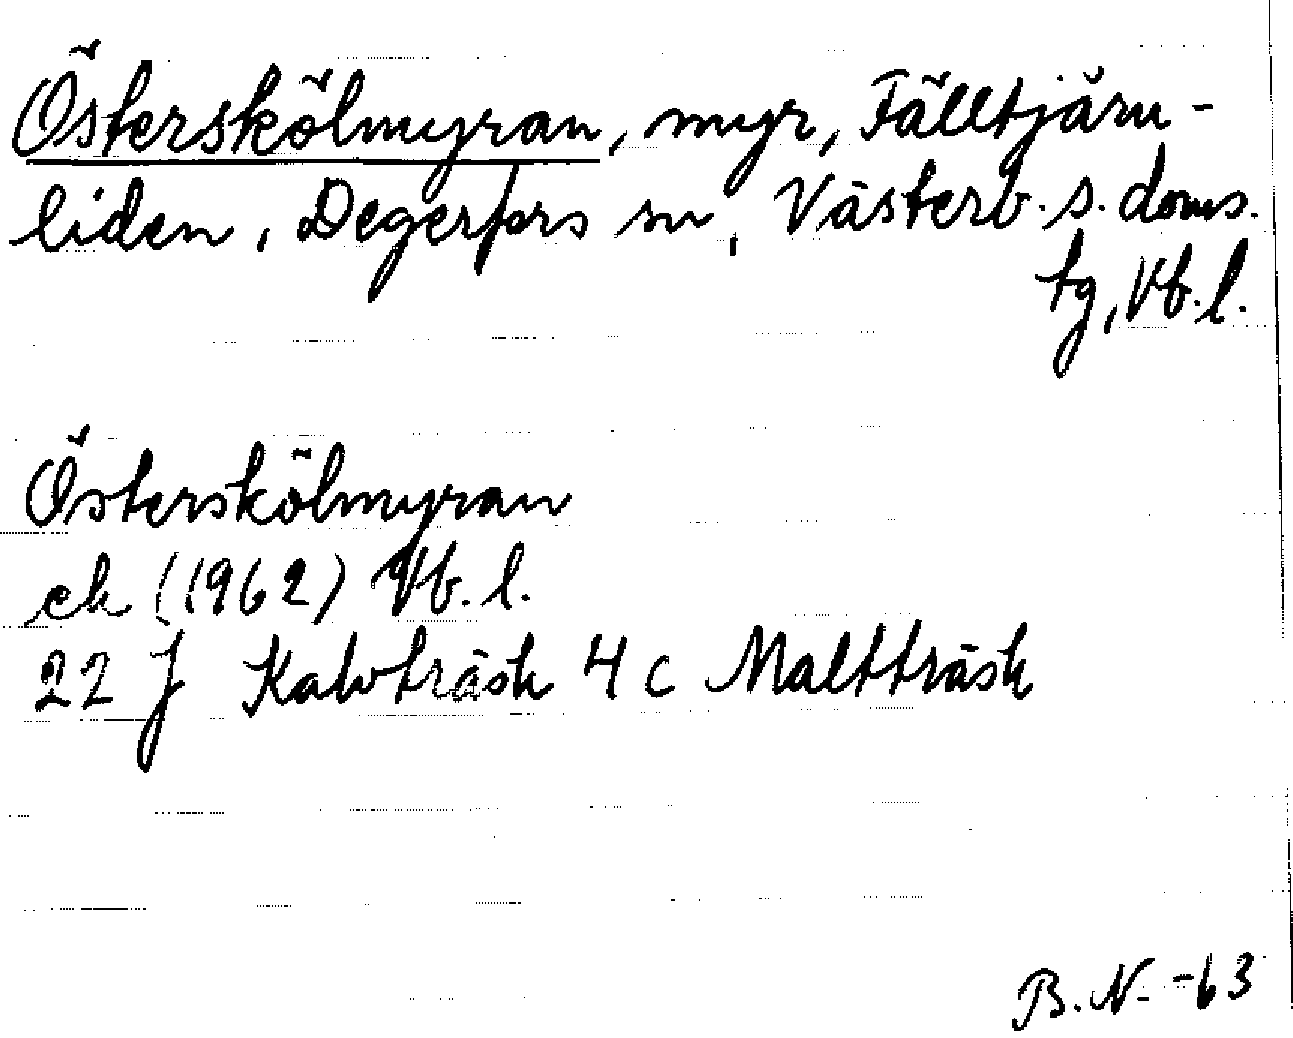 Österskölmyran, myr, Fälltjärn-
liden, Degerfors sn, Västerb. s. doms.
tg, Vb. l.
Österskölmyran
ek (1962) Vb. l.
22 J Kalvträsk 4 c Maltträsk
B. N. -63